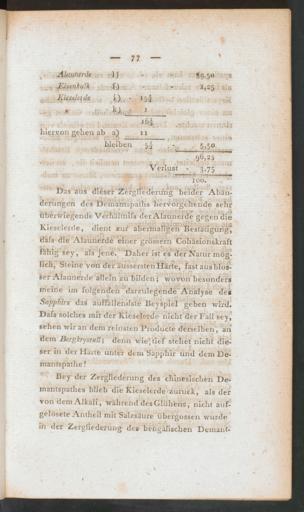 — 77 —
Alaunerde l) - - 89,50
Eisenkalk f) - - 1,25
Kieselerde k) 15½
k) 1
16½
hiervon gehen ab a) 11
bleiben 5½ - 5,50
96,25
Verlust - 3,75
100.
Das aus dieser Zergliederung beider Abän-
derungen des Demantspaths hervorgehende sehr
überwiegende Verhältniss der Alaunerde gegen die
Kieselerde, dient zur abermaligen Bestätigung,
dass die Alaunerde einer grössern Cohäsionskraft
fähig sey, als jene. Daher ist es der Natur mög-
lich, Steine von der äussersten Härte, fast aus blos-
ser Alaunerde allein zu bilden; wovon besonders
meine im folgenden darzulegende Analyse des
Sapphirs das auffallendste Beyspiel geben wird.
Dass solches mit der Kieselerde nicht der Fall sey,
sehen wir an dem reinsten Producte derselben, an
dem Bergkrystall; denn wie tief stehet nicht die-
ser in der Härte unter dem Sapphir und dem De-
mantspathe!
Bey der Zergliederung des chinesischen De-
mantspathes blieb die Kieselerde zurück, als der
von dem Alkali, während des Glühens, nicht auf-
gelösete Antheil mit Salzsäure übergossen wurde
in der Zergliederung des bengalischen Demant-